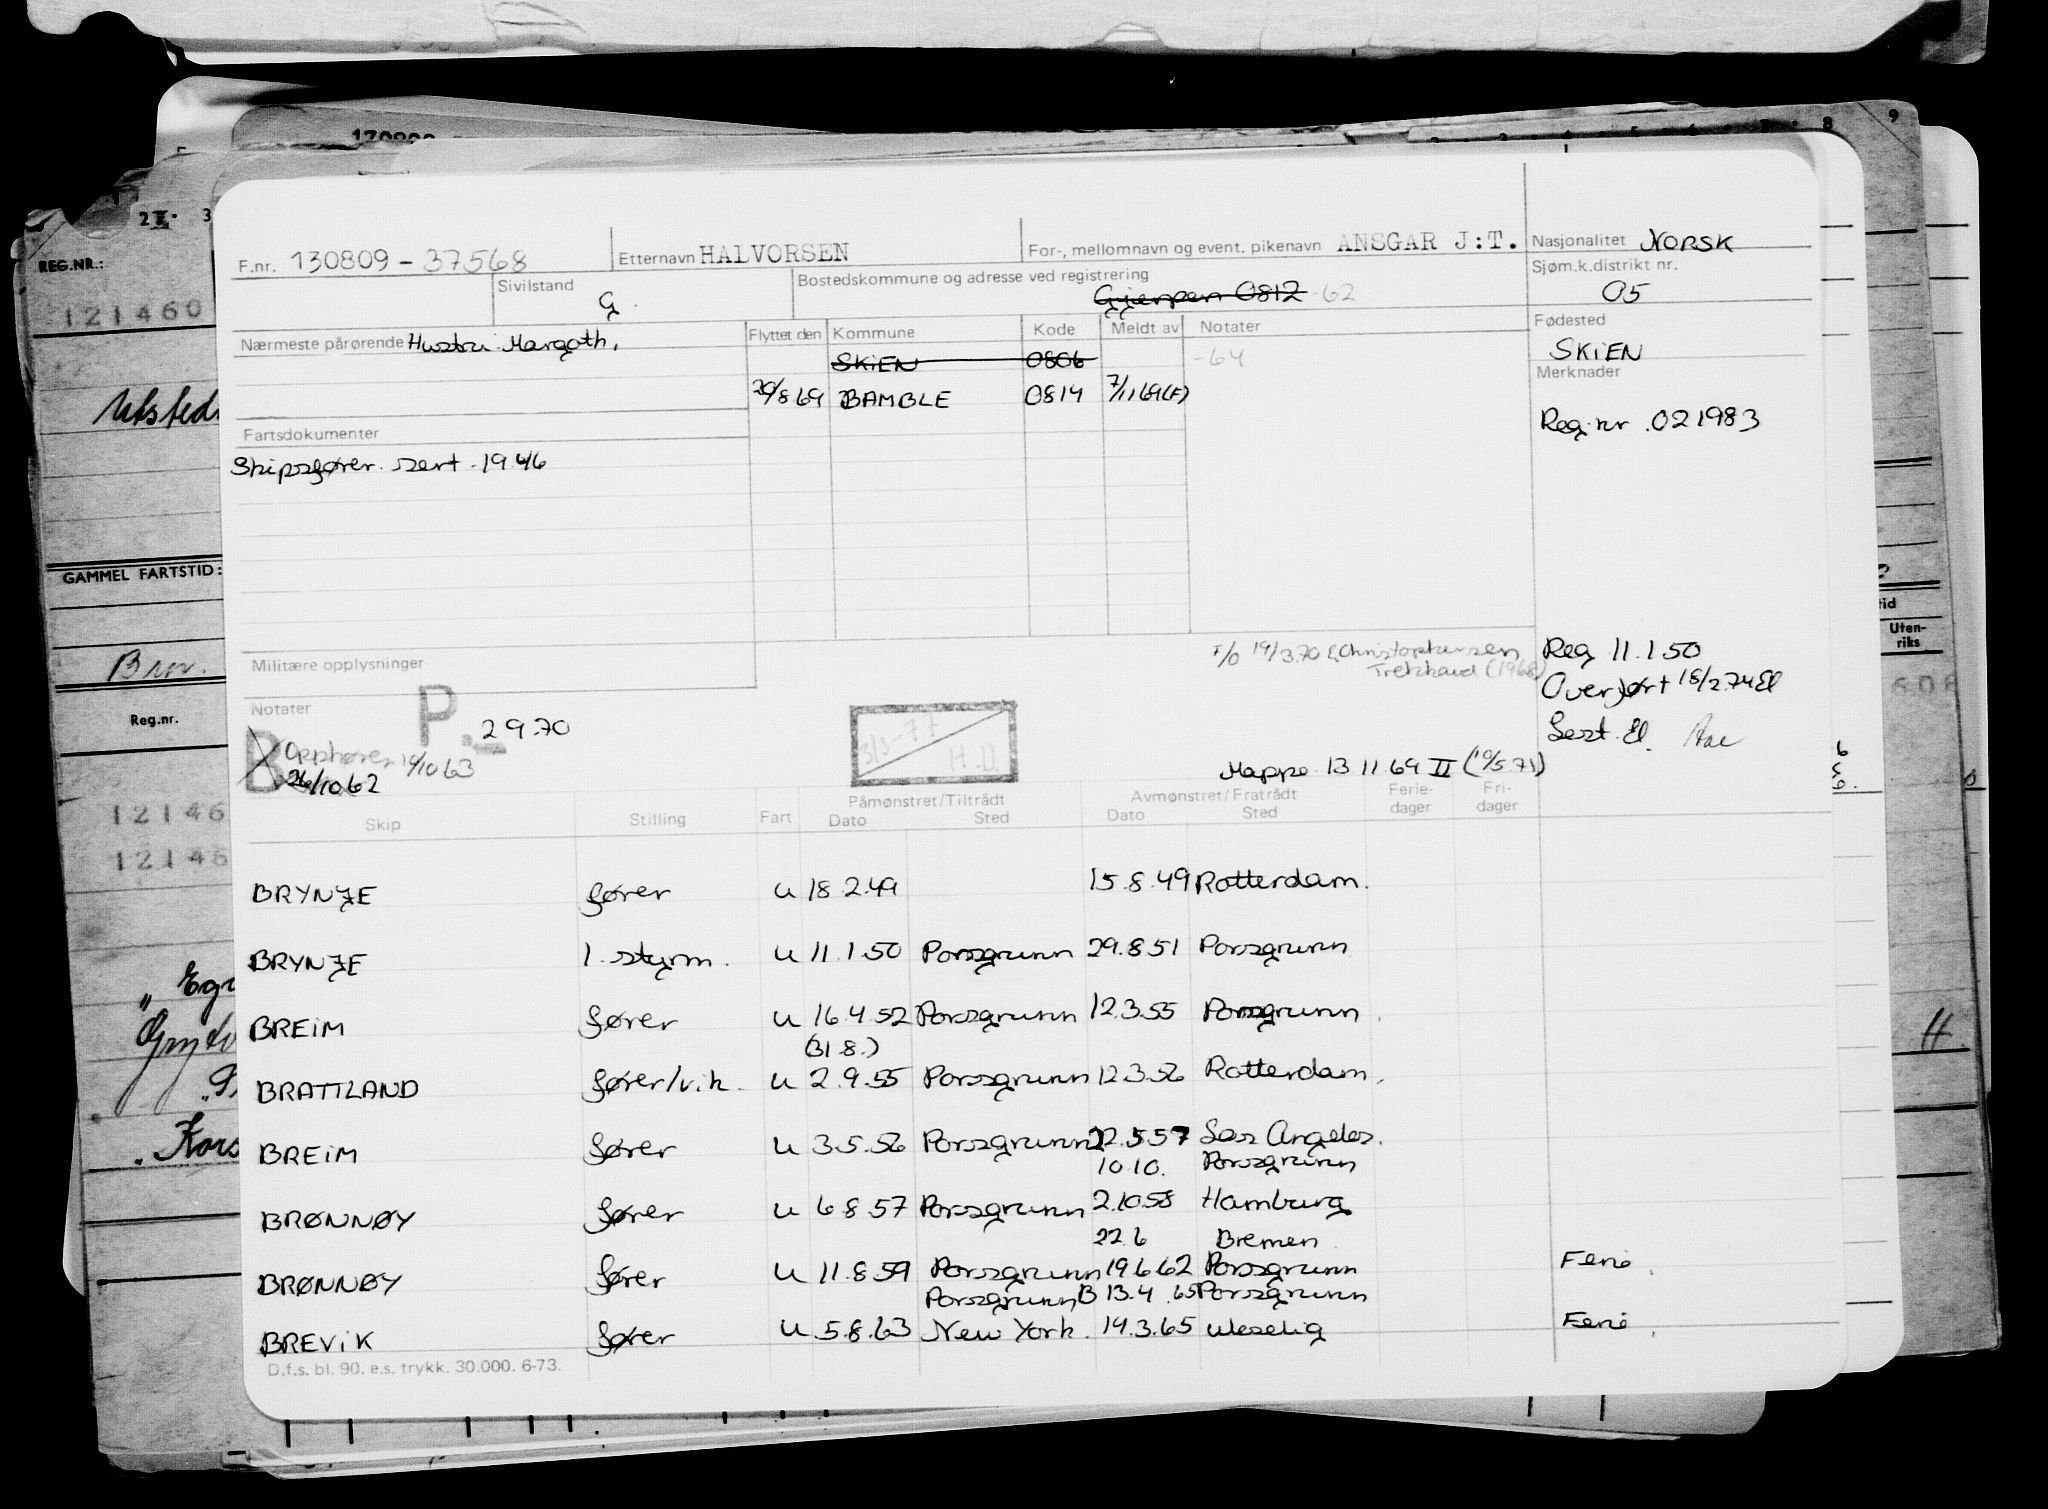 130809
2 3
REG.NR.:
121460
Utsted
GAMMEL FARTSTID:
Reg.nr.
12146
12146
F.nr. 130809 - 37568
Etternavn HALVORSEN
For-, mellomnavn og event. pikenavn ANSGAR J:T.
Nasjonalitet NORSK
Sivilstand G
Bostedskommune og adresse ved registrering
Gjerpen 0812 -62
Sjøm.k.distrikt nr.
05
Nærmeste pårørende Hustru Margoth.
Flyttet den Kommune Kode Meldt av Notater
SKIEN 0806 -64
20/8 69 BAMBLE 0814 7/11 69(F)
Fødested
SKIEN
Merknader
Reg.nr. 021983
Fartsdokumenter
Skipsfører. sert. 1946
Militære opplysninger
F/O 19/3.70 Christophersen
(1968)
Reg 11.1.50
Overført 18/2.74 El
Sert. El.
Notater
P. 2 9.70
B Opphører 19/10 63
26/10 62
3/3-77
H.D.
Mappe 13 11 69 II (10/5.71)
Skip Stilling Fart Påmønstret/Tiltrådt Dato Sted Avmønstret/Fratrådt Dato Sted Ferie-dager Fri-dager
BRYNJE fører u 18 2.49 15.8.49 Rotterdam.
BRYNJE 1. styrm. u 11.1.50 Porsgrunn 29.8.51 Porsgrunn
BREIM fører u 16.4.52 Porsgrunn 12.3.55 Porsgrunn.
(31.8.)
BRATTLAND fører/vik. u 2.9.55 Porsgrunn 12.3.56 Rotterdam.
BREIM fører u 3.5.56 Porsgrunn 22.5.57 Los Angeles.
10.10. Porsgrunn
BRØNNØY fører u 6.8.57 Porsgrunn 2.10.58 Hamburg
22.6 Bremen
BRØNNØY fører u 11.8.59 Porsgrunn 19.6.62 Porsgrunn Ferie.
Porsgrunn B 13.4.65 Porsgrunn
BREVIK fører u 5.8.63 New York. 14.3.65 Wesselig Ferie.
D.f.s. bl. 90. e.s. trykk. 30.000. 6-73.
tid
Uten-
riks